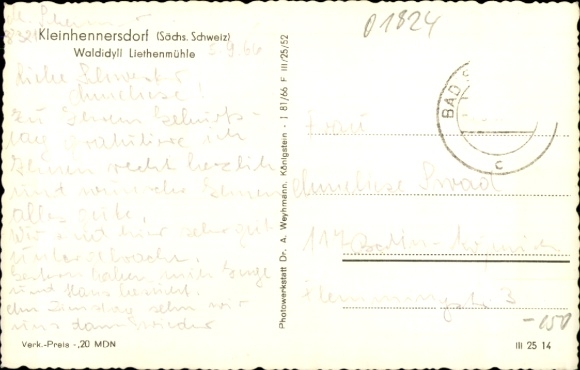 Kleinhennersdorf (Sächs. Schweiz)
Waldidyll Liethenmühle
5.9.66
Liebe Schwester
Anneliese!
Zu Ihrem Geburts-
tag gratuliere ich
Ihnen recht herzlich
und wünsche Ihnen
alles gute.
Wir sind hier sehr gut
untergebracht.
Gestern haben mich
und Hans besucht.
Am Dienstag sehn wir
uns dann wieder
Verk.-Preis -,20 MDN
Photowerkstatt Dr. A. Weyhmann, Königstein - I 81/66 F III/25/52
01824
BAD
c
Frau
Anneliese
117 Berlin-Köpenick
Flemmingstr. 3
-050
III 25 14